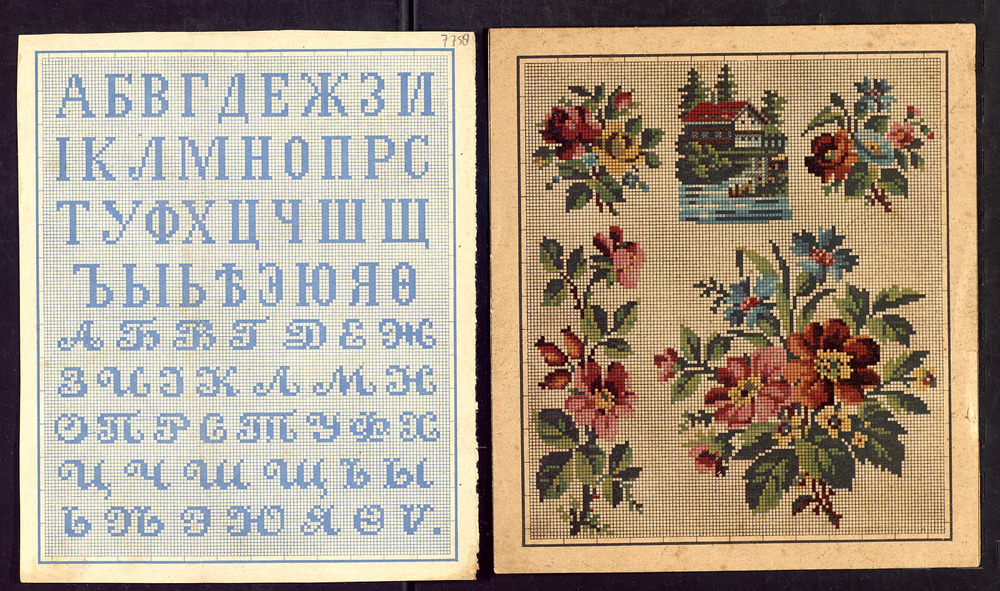 7750
АБВГДЕЖЗИ
ІКЛМНОПРС
ТУФХЦЧШЩ
ЪЫЬѢЭЮЯѲ
АБВГДЕЖ
ЗИІКЛМН
ОПРСТУФХ
ЦЧШЩЪЫ
ЬѢЭЮЯѲѴ.